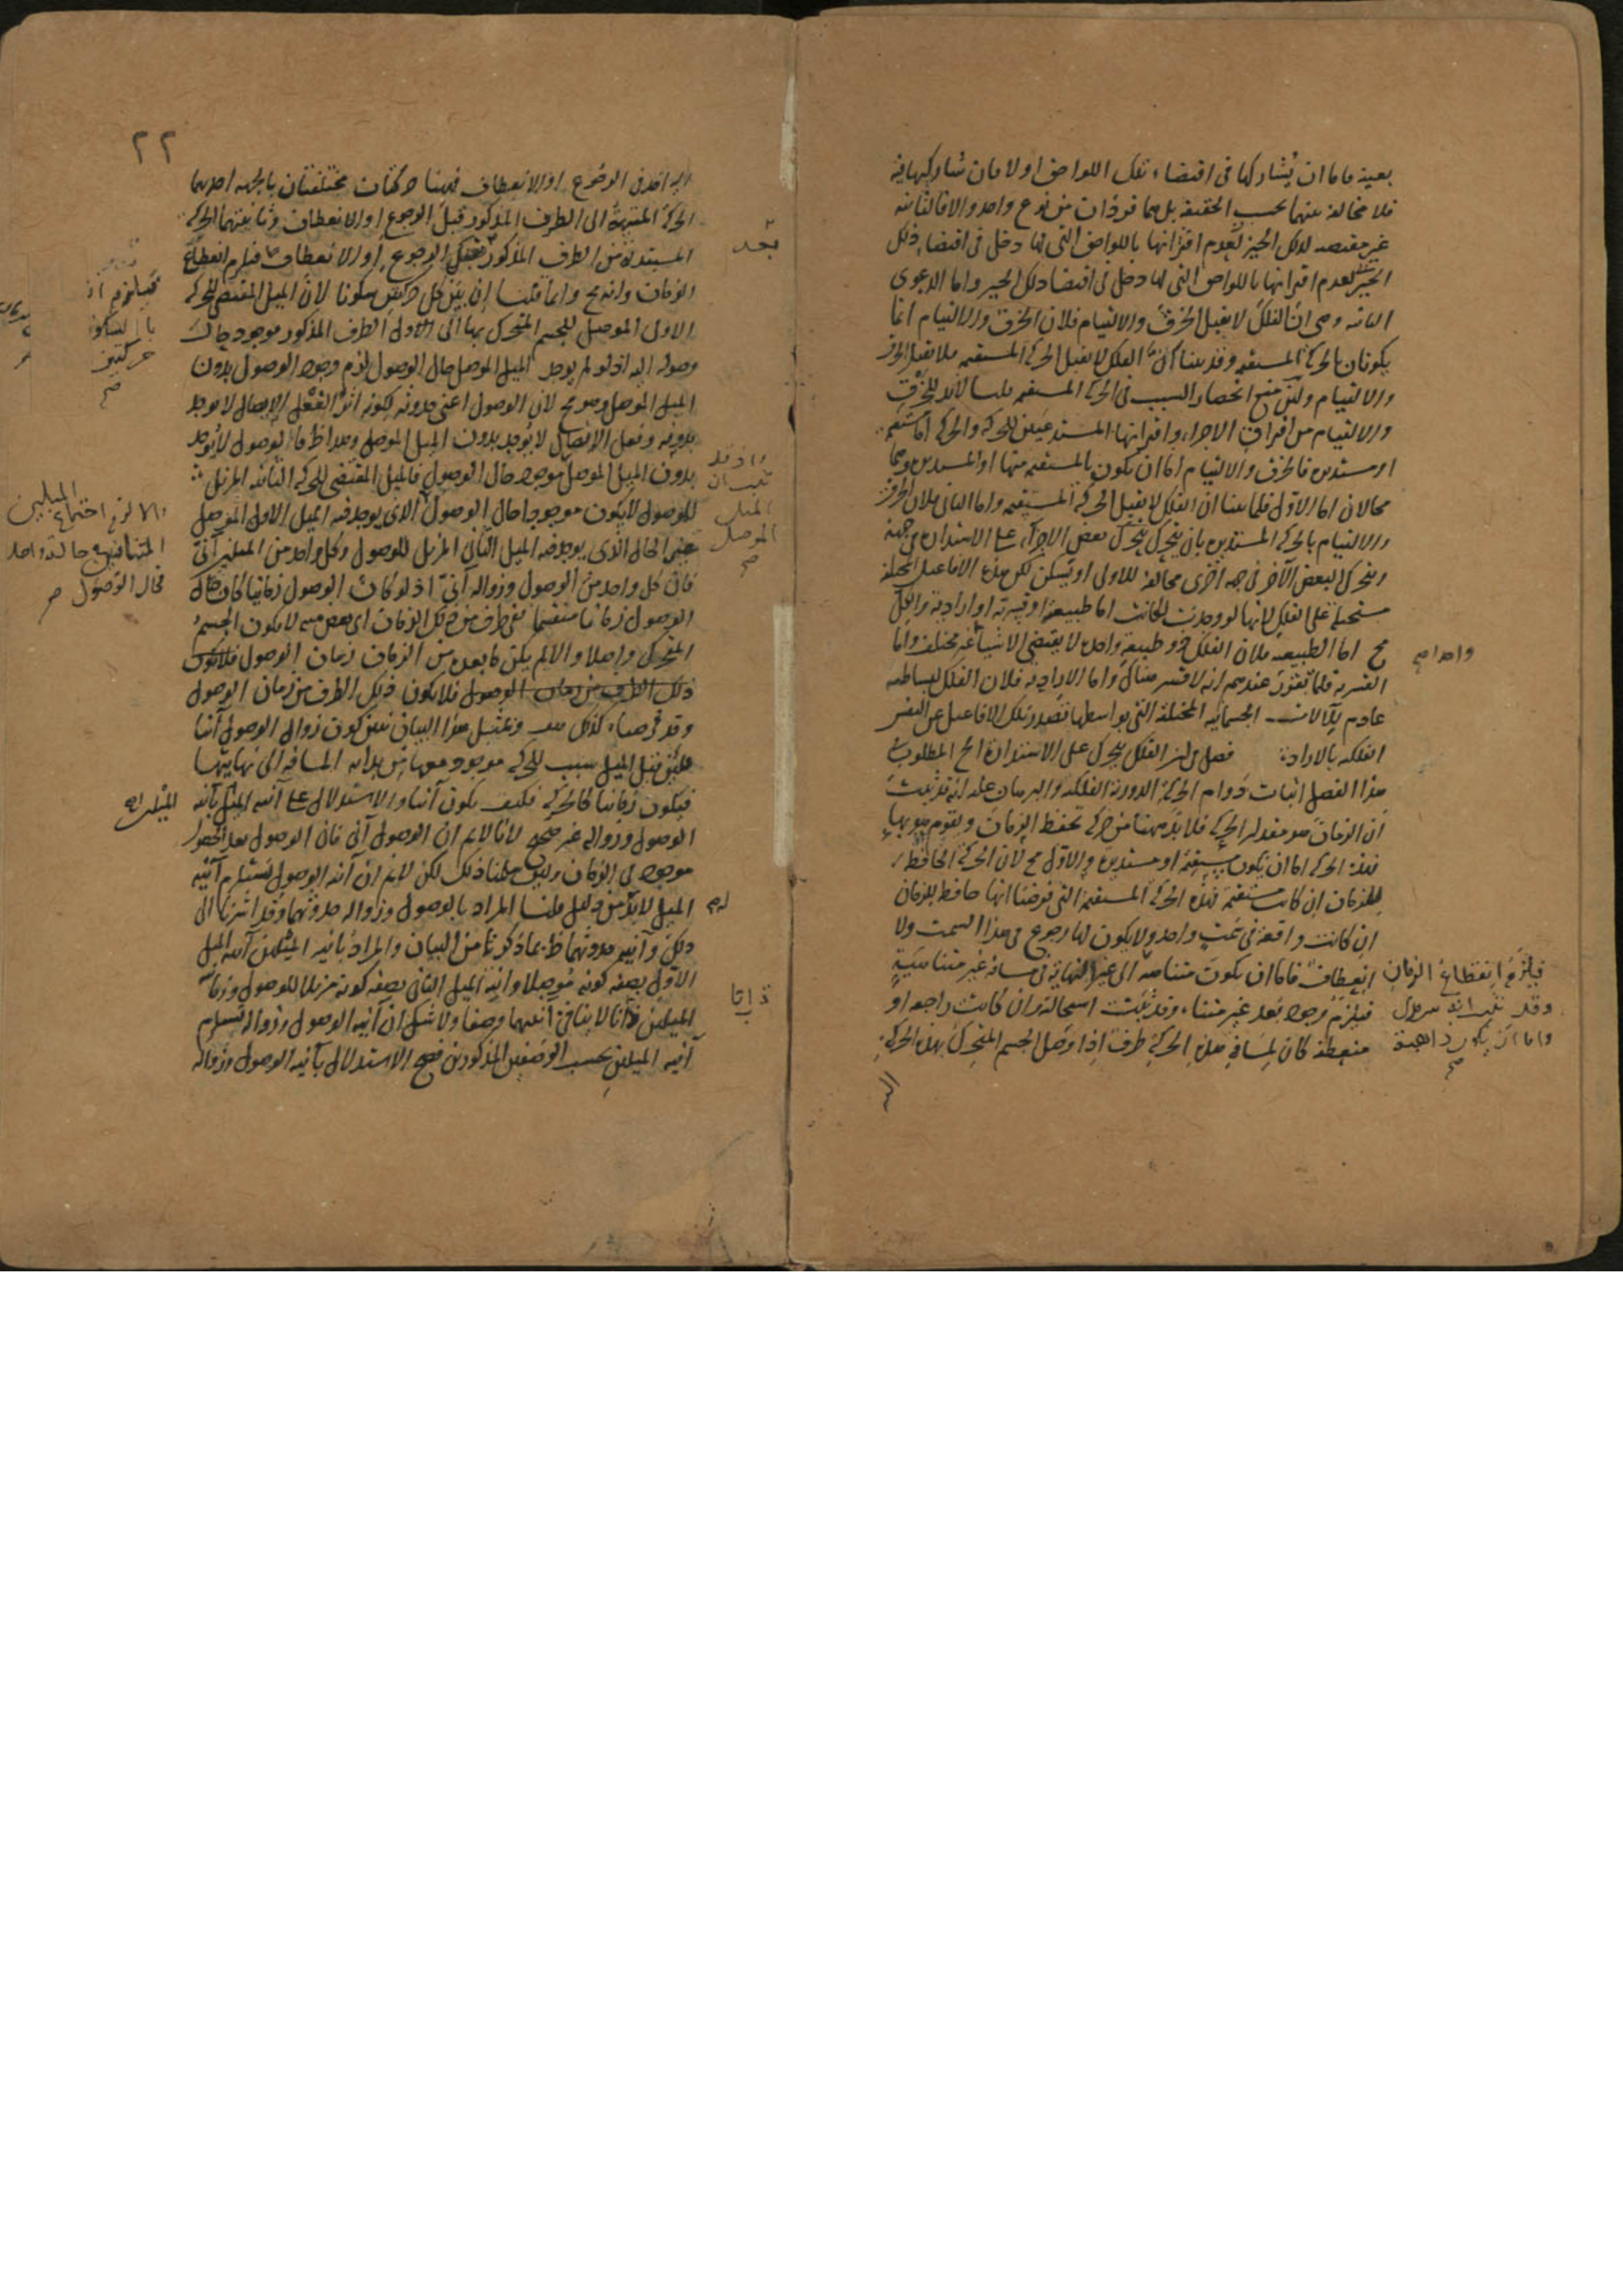 بعينه فاما ان يشاركها فى اقتضاء تلك اللواحق اولا فان شاركها فيه
فلا مخالفة بينهما بحسب الحقيقة بل هما فردان من نوع واحد والا فالثانية
غير مقتضية لذلك الحيز لعدم اقترانها باللواحق التى لها دخل فى اقتضاء ذلك
الحيز لعدم اقترانها باللواحق التى لها دخل فى اقتضاء ذلك الحيز واما الدعوى
الثانية وهى ان الفلك لا يقبل الخرق والالتيام فلان الخرق والالتيام انما
يكونان بالحركة المستقيمة وقد بينا ان الفلك لا يقبل الحركة المستقيمة فلا يقبل الخرق
والالتيام ولئن منع انحصار السبب فى الحركة المستقيمة قلنا لابد للخرق
والالتيام من افتراق الاجزاء واقترانها المستدعيين للحركة والحركة اما مستقيمة
او مستديرة فالخرق والالتيام اما ان يكون بالمستقيمة منها او المستديرة وهما
محالان اما الاول فلما بينا ان الفلك لا يقبل الحركة المستقيمة واما الثانى فلان الخرق
والالتيام بالحركة المستديرة بان يتحرك بعض الاجزاء على الاستدارة فى جهة
ويتحرك البعض الآخر فى جهة اخرى مخالفة للاولى او يسكن لكن هذه الافاعيل المختلفة
مستحيلة على الفلك لانها لو وجدت لكانت اما طبيعية او قسرية او ارادية والكل
مح اما الطبيعية فلان الفلك ذو طبيعة واحدة لا يقتضى الا شيأ غير مختلف واما
واحدا صح
القسرية فلما تقرر عندهم انه لا قسر هناك واما الارادية فلان الفلك لبساطته
عادم للآلات الجسمانية المختلفة التى بواسطتها تصدر تلك الافاعيل عن النفس
الفلكية بالارادة فصل فى ان الفلك يتحرك على الاستدارة الخ المطلوب
هذا الفصل اثبات دوام الحركة الدورية الفلكية والبرهان عليه انه قد ثبت
ان الزمان هو مقدار الحركة فلا بد ههنا من حركة تحفظ الزمان ويقوم هو بها
فهذه الحركة اما ان تكون مستقيمة او مستديرة والاول مح لان الحركة الحافظة
للزمان ان كانت مستقيمة فهذه الحركة المستقيمة التى فرضنا انها حافظة للزمان
ان كانت واقعة فى سمت واحد ولا يكون لها رجوع فى هذا السمت ولا
انعطاف فاما ان تكون متناهية الى غير النهاية فى مسافة غير متناهية
فيلزم انقطاع الزمان
فيلزم وجود بعد غير متناه وقد ثبتت استحالته وان كانت راجعة او
منعطفة كان لمسافة هذه الحركة طرف اذا وصل الجسم المتحرك بهذه الحركة
واما ان يكون ذاهبة
صح
اليه
٢٢
اليه اخذ فى الرجوع او الانعطاف فههنا حركتان مختلفتان بالجهة احديهما
الحركة المنتهية الى الطرف المذكور قبل الرجوع او الانعطاف وثانيتهما الحركة
المبتدئة من الطرف المذكور الرجوع او الانعطاف فيلزم انقطاع
بعد
الزمان وانه مح وانما قلنا ان بين كل حركتين سكونا لان الميل المقتضى للحركة
الاولى الموصل للجسم المتحرك بها الى الطرف المذكور موجود حال
وصوله اليه اذ لو لم يوجد الميل الموصل حال الوصول لزم وجود الوصول بدون
الميل الموصل وهو مح لان الوصول اعنى حدوثه لكونه اثر الفعل الايصال لا يوجد
بدونه وفعل الايصال لا يوجد بدون الميل الموصل وهذا ظ فالوصول لا يوجد
بدون الميل الموصل موجود حال الوصول فالميل المقتضى للحركة الثانية المزيل
واذ قد
ثبت ان
الميل
الموصل
صح
للوصول لا يكون موجودا حال الوصول الذى يوجد فيه الميل الاول الموصل
والا لزم اجتماع الميلين
المتنافيين فى حالة واحدة
الحال الذى يوجد فيه الميل الثانى المزيل للوصول وكل واحد من الميلين آنى
فان كل واحد من الوصول وزواله آنى اذ لو كان الوصول زمانيا لكان
الوصول زمانا منقسما ففى طرف من ذلك الزمان اى بعض منه لا يكون الجسم
المتحرك واصلا والا لم يكن ما بعده من الزمان زمان الوصول
ذلك الطرف من زمان الوصول فلا يكون ذلك الطرف من زمان الوصول
وقد فرضناه كذلك هف وبمثل هذا البيان تبين كون زوال الوصول آنيا
فلئن قيل الميل سبب للحركة موجود معها من بداية المسافة الى نهايتها
فيكون زمانيا كالحركة فكيف يكون آنيا والاستدلال على آنية الميل بآنية
الوصول وزواله غير صحيح لانا لا نم ان الوصول آنى فان الوصول بعد الحضور
موجود فى الزمان ولئن سلمنا ذلك لكن لا نم ان آنية الوصول تستلزم آنية
الميل لا بد من دليل قلنا المراد بالوصول وزواله حدوثهما وقد اشرنا الى
ذلك وآنية حدوثهما ظ بما ذكرنا من البيان والمراد بآنية الميلين آنية الميل
الاول بصفة كونه موصلا وآنية الميل الثانى بصفة كونه مزيلا للوصول
الميلين ذاتا لا ينافى آنيتهما وصفا ولا شك ان آنية الوصول وزواله تستلزم
ذاتا
آنية الميلين بحسب الوصفين المذكورين فصح الاستدلال بآنية الوصول وزواله